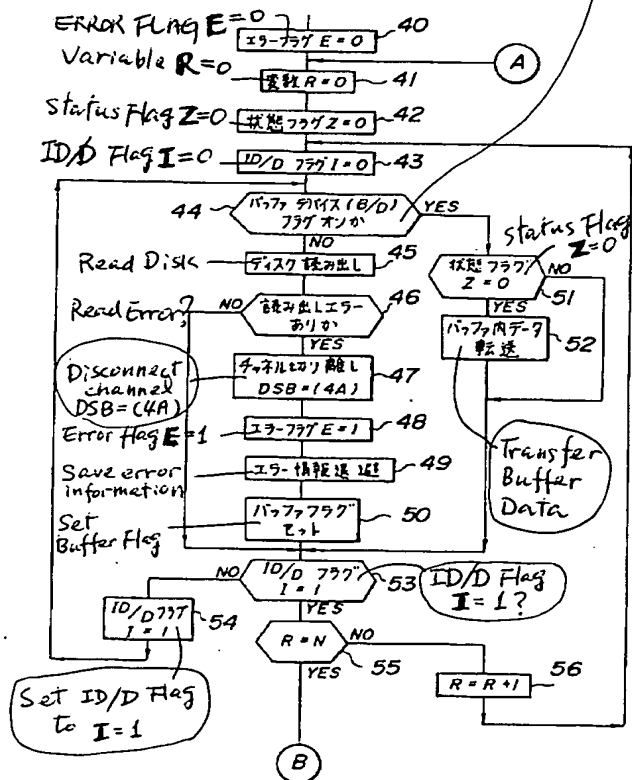 ERROR FLAG E=0
エラーフラグ E=0
40
A
Variable R=0
変数 R=0
41
Status Flag Z=0
状態フラグ Z=0
42
ID/D Flag I=0
ID/D フラグ I=0
43
44
バッファ デバイス (B/D)
フラグ オンか
YES
NO
Read Disk
ディスク 読み出し
45
Status Flag
Z=0
状態フラグ
Z=0
NO
51
YES
Read Error?
NO
読み出しエラー
ありか
46
YES
バッファ内データ
転送
52
Disconnect
channel
DSB=(4A)
チャネル切り離し
DSB=(4A)
47
Error Flag E=1
エラーフラグ E=1
48
Save error
information
エラー情報退避
49
Transfer
Buffer
Data
Set
Buffer Flag
バッファフラグ
セット
50
NO
ID/D フラグ
I=1
53
YES
ID/D Flag
I=1?
ID/Dフラグ
I=1
54
R=N
NO
55
YES
R=R+1
56
Set ID/D Flag
to I=1
B